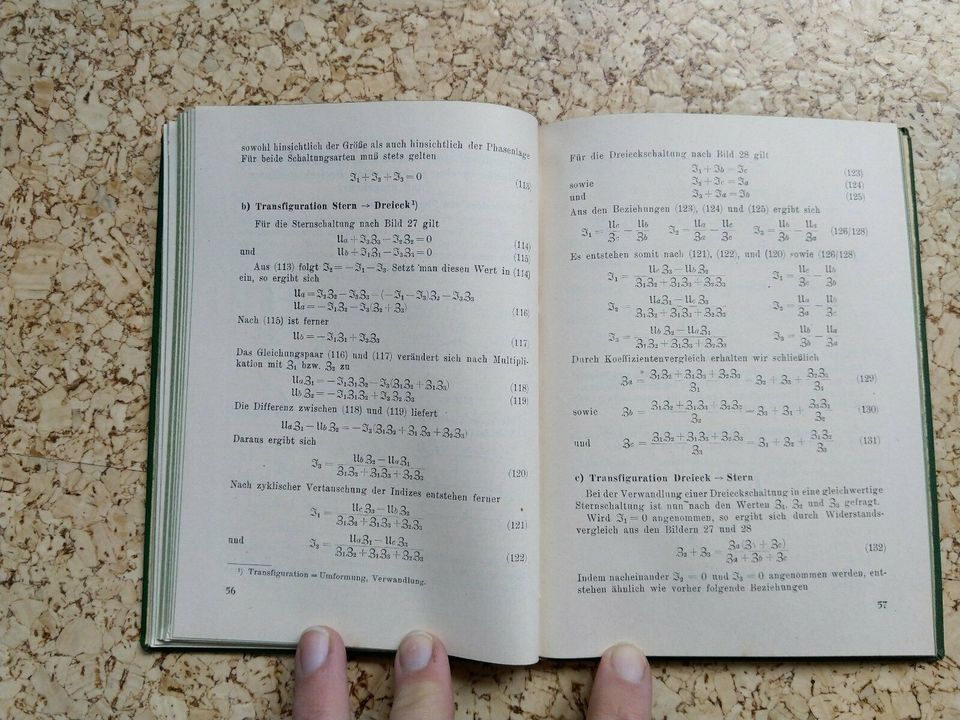 sowohl hinsichtlich der Größe als auch hinsichtlich der Phasenlage
Für beide Schaltungsarten muß stets gelten
ℑ₁ + ℑ₂ + ℑ₃ = 0 (113)
b) Transfiguration Stern → Dreieck¹)
Für die Sternschaltung nach Bild 27 gilt
𝔘a + ℑ₃ℨ₃ − ℑ₂ℨ₂ = 0 (114)
und 𝔘b + ℑ₁ℨ₁ − ℑ₃ℨ₃ = 0 (115)
Aus (113) folgt ℑ₂ = −ℑ₁ − ℑ₃. Setzt man diesen Wert in (114)
ein, so ergibt sich
𝔘a = ℑ₂ℨ₂ − ℑ₃ℨ₃ = (−ℑ₁ − ℑ₃)ℨ₂ − ℑ₃ℨ₃
𝔘a = −ℑ₁ℨ₂ − ℑ₃(ℨ₂ + ℨ₃) (116)
Nach (115) ist ferner
𝔘b = −ℑ₁ℨ₁ + ℑ₃ℨ₃ (117)
Das Gleichungspaar (116) und (117) verändert sich nach Multipli-
kation mit ℨ₁ bzw. ℨ₂ zu
𝔘aℨ₁ = −ℑ₁ℨ₁ℨ₂ − ℑ₃(ℨ₁ℨ₂ + ℨ₁ℨ₃) (118)
𝔘bℨ₂ = −ℑ₁ℨ₁ℨ₂ + ℑ₃ℨ₂ℨ₃ (119)
Die Differenz zwischen (118) und (119) liefert
𝔘aℨ₁ − 𝔘bℨ₂ = −ℑ₃(ℨ₁ℨ₂ + ℨ₁ℨ₃ + ℨ₂ℨ₃)
Daraus ergibt sich
ℑ₃ = (𝔘bℨ₂ − 𝔘aℨ₁) / (ℨ₁ℨ₂ + ℨ₁ℨ₃ + ℨ₂ℨ₃) (120)
Nach zyklischer Vertauschung der Indizes entstehen ferner
ℑ₁ = (𝔘cℨ₃ − 𝔘bℨ₂) / (ℨ₁ℨ₂ + ℨ₁ℨ₃ + ℨ₂ℨ₃) (121)
und ℑ₂ = (𝔘aℨ₁ − 𝔘cℨ₃) / (ℨ₁ℨ₂ + ℨ₁ℨ₃ + ℨ₂ℨ₃) (122)
¹) Transfiguration = Umformung, Verwandlung.
56
Für die Dreieckschaltung nach Bild 28 gilt
ℑ₁ + ℑb = ℑc (123)
sowie ℑ₂ + ℑc = ℑa (124)
und ℑ₃ + ℑa = ℑb (125)
Aus den Beziehungen (123), (124) und (125) ergibt sich
ℑ₁ = 𝔘c/ℨc − 𝔘b/ℨb ℑ₂ = 𝔘a/ℨa − 𝔘c/ℨc ℑ₃ = 𝔘b/ℨb − 𝔘a/ℨa (126/128)
Es entstehen somit nach (121), (122), und (120) sowie (126/128)
ℑ₁ = (𝔘cℨ₃ − 𝔘bℨ₂) / (ℨ₁ℨ₂ + ℨ₁ℨ₃ + ℨ₂ℨ₃) ℑ₁ = 𝔘c/ℨc − 𝔘b/ℨb
ℑ₂ = (𝔘aℨ₁ − 𝔘cℨ₃) / (ℨ₁ℨ₂ + ℨ₁ℨ₃ + ℨ₂ℨ₃)
ℑ₃ = (𝔘bℨ₂ − 𝔘aℨ₁) / (ℨ₁ℨ₂ + ℨ₁ℨ₃ + ℨ₂ℨ₃) ℑ₃ = 𝔘b/ℨb − 𝔘a/ℨa
Durch Koeffizientenvergleich erhalten wir schließlich
ℨa = (ℨ₁ℨ₂ + ℨ₁ℨ₃ + ℨ₂ℨ₃)/ℨ₁ = ℨ₂ + ℨ₃ + ℨ₂ℨ₃/ℨ₁ (129)
sowie ℨb = (ℨ₁ℨ₂ + ℨ₁ℨ₃ + ℨ₂ℨ₃)/ℨ₂ = ℨ₃ + ℨ₁ + ℨ₃ℨ₁/ℨ₂ (130)
und ℨc = (ℨ₁ℨ₂ + ℨ₁ℨ₃ + ℨ₂ℨ₃)/ℨ₃ = ℨ₁ + ℨ₂ + ℨ₁ℨ₂/ℨ₃ (131)
c) Transfiguration Dreieck → Stern
Bei der Verwandlung einer Dreieckschaltung in eine gleichwertige
Sternschaltung ist nun nach den Werten ℨ₁, ℨ₂ und ℨ₃ gefragt.
Wird ℑ₁ = 0 angenommen, so ergibt sich durch Widerstands-
vergleich aus den Bildern 27 und 28
ℨ₂ + ℨ₃ = ℨa(ℨb + ℨc) / (ℨa + ℨb + ℨc) (132)
Indem nacheinander ℑ₂ = 0 und ℑ₃ = 0 angenommen werden, ent-
stehen ähnlich wie vorher folgende Beziehungen
57